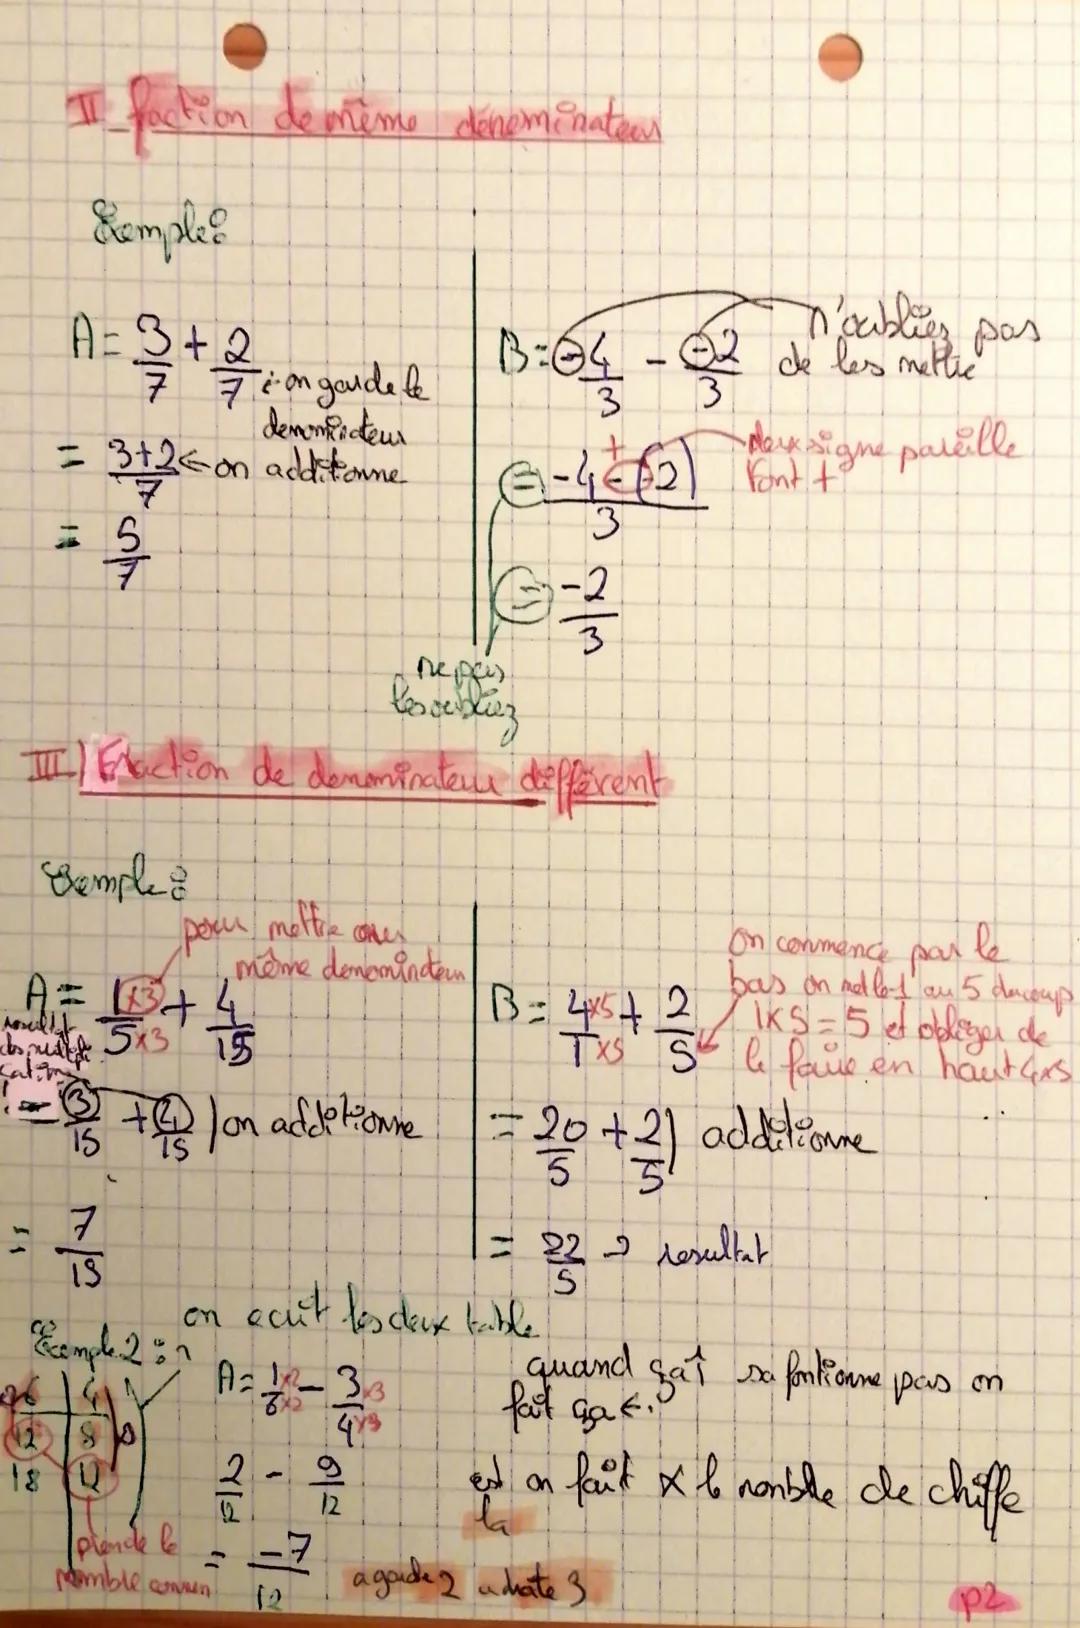 II_ fraction de même dénominateur
Exemple:
A = 3/7 + 2/7 : on garde le
denominateur
= 3+2/7 ← on additionne
= 5/7
B = -4/3 - -2/3
n'oubliez pas
de les mettre
= -4 - (-2)/3
+
deux signe pareille
font +
= -2/3
ne pas
les oubliez
III_) Fraction de denominateur différent
Exemple:
pour mettre au
même denominateur
A = 1×3/5×3 + 4/15
resultat
= 3/15 + 4/15 ) on additionne
= 7/15
B = 4×5/1×5 + 2/5
On commence par le
bas on met le 1 au 5 ducoup
1×5 = 5 et obliger de
le faire en haut 4×5
= 20/5 + 2/5 ) additionne
= 22/5 → resultat
on ecrit les deux table
Exemple 2:
6 | 4
12 | 8
18 | 12
prende le
nombre commun
A = 1×2/6×2 - 3×3/4×3
2/12 - 9/12
= -7/12
quand ça sa fontionne pas on
fait ça ←.
et on fait × le nombre de chiffe
la
a gauche 2 a droite 3
p2